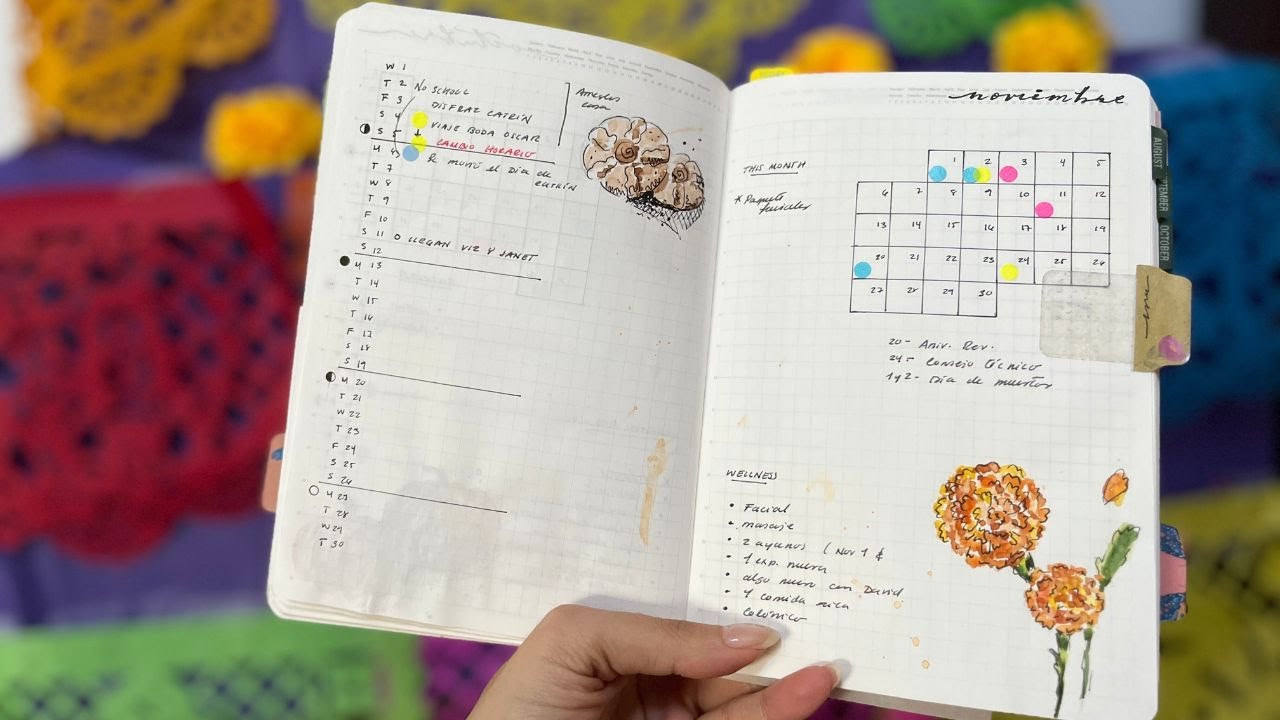 W 1
T 2 NO SCHOOL
F 3 DISFRAZ CATRÍN
S 4 VIAJE BODA OSCAR
S 5 CAMBIO HORARIO
M 6 R murió el Día de catrín
T 7
W 8
T 9
F 10
S 11 O LLEGAN VIZ Y JANET
S 12
M 13
T 14
W 15
T 16
F 17
S 18
S 19
M 20
T 21
W 22
T 23
F 24
S 25
S 26
M 27
T 28
W 29
T 30
noviembre
THIS MONTH
* Paquete faciales
1 2 3 4 5
6 7 8 9 10 11 12
13 14 15 16 17 18 19
20 21 22 23 24 25 26
27 28 29 30
20 - Aniv. Rev.
24 - Consejo técnico
1 y 2 - Día de muertos
WELLNESS
• Facial
• masaje
• 2 ayunos (Nov 1 &
• 1 exp. nueva
• algo nuevo con David
• 1 comida rica
• Colónico
AUGUST
SEPTEMBER
OCTOBER